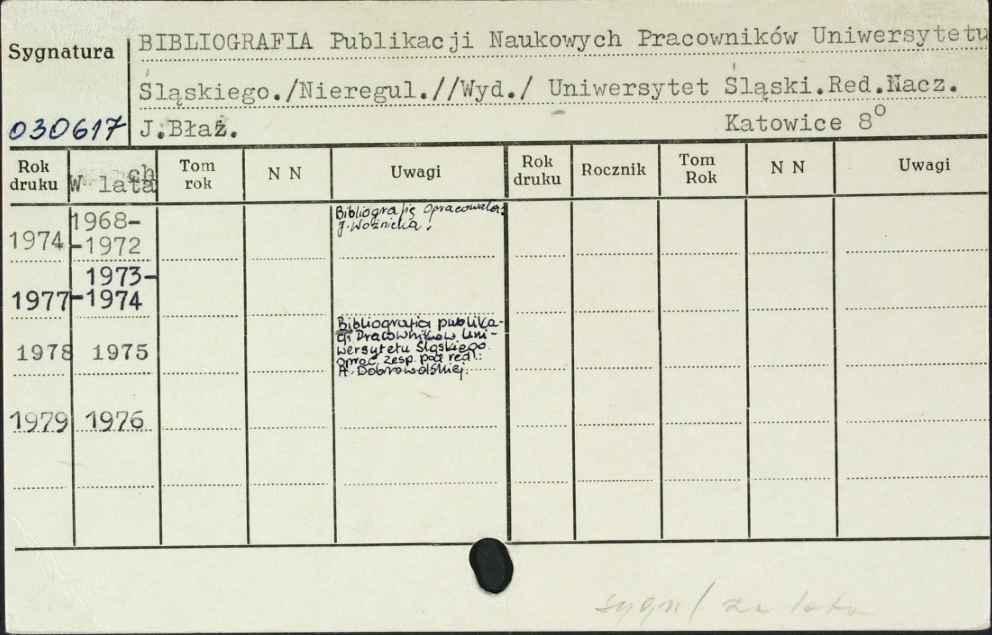 Sygnatura
BIBLIOGRAFIA Publikacji Naukowych Pracowników Uniwersytetu
Śląskiego./Nieregul.//Wyd./ Uniwersytet Śląski.Red.Nacz.
030617 J.Błaż. Katowice 8°
Rok druku W latach Tom rok N N Uwagi Rok druku Rocznik Tom Rok N N Uwagi
1974 1968-
-1972
Bibliografię opracowała:
J. Woźnicka.
1977 1973-
-1974
1978 1975
Bibliografia publika-
cji Pracowników Uni-
wersytetu Śląskiego.
oprac. zesp. pod red.:
A. Dobrowolskiej.
1979 1976
sygn/ za lata